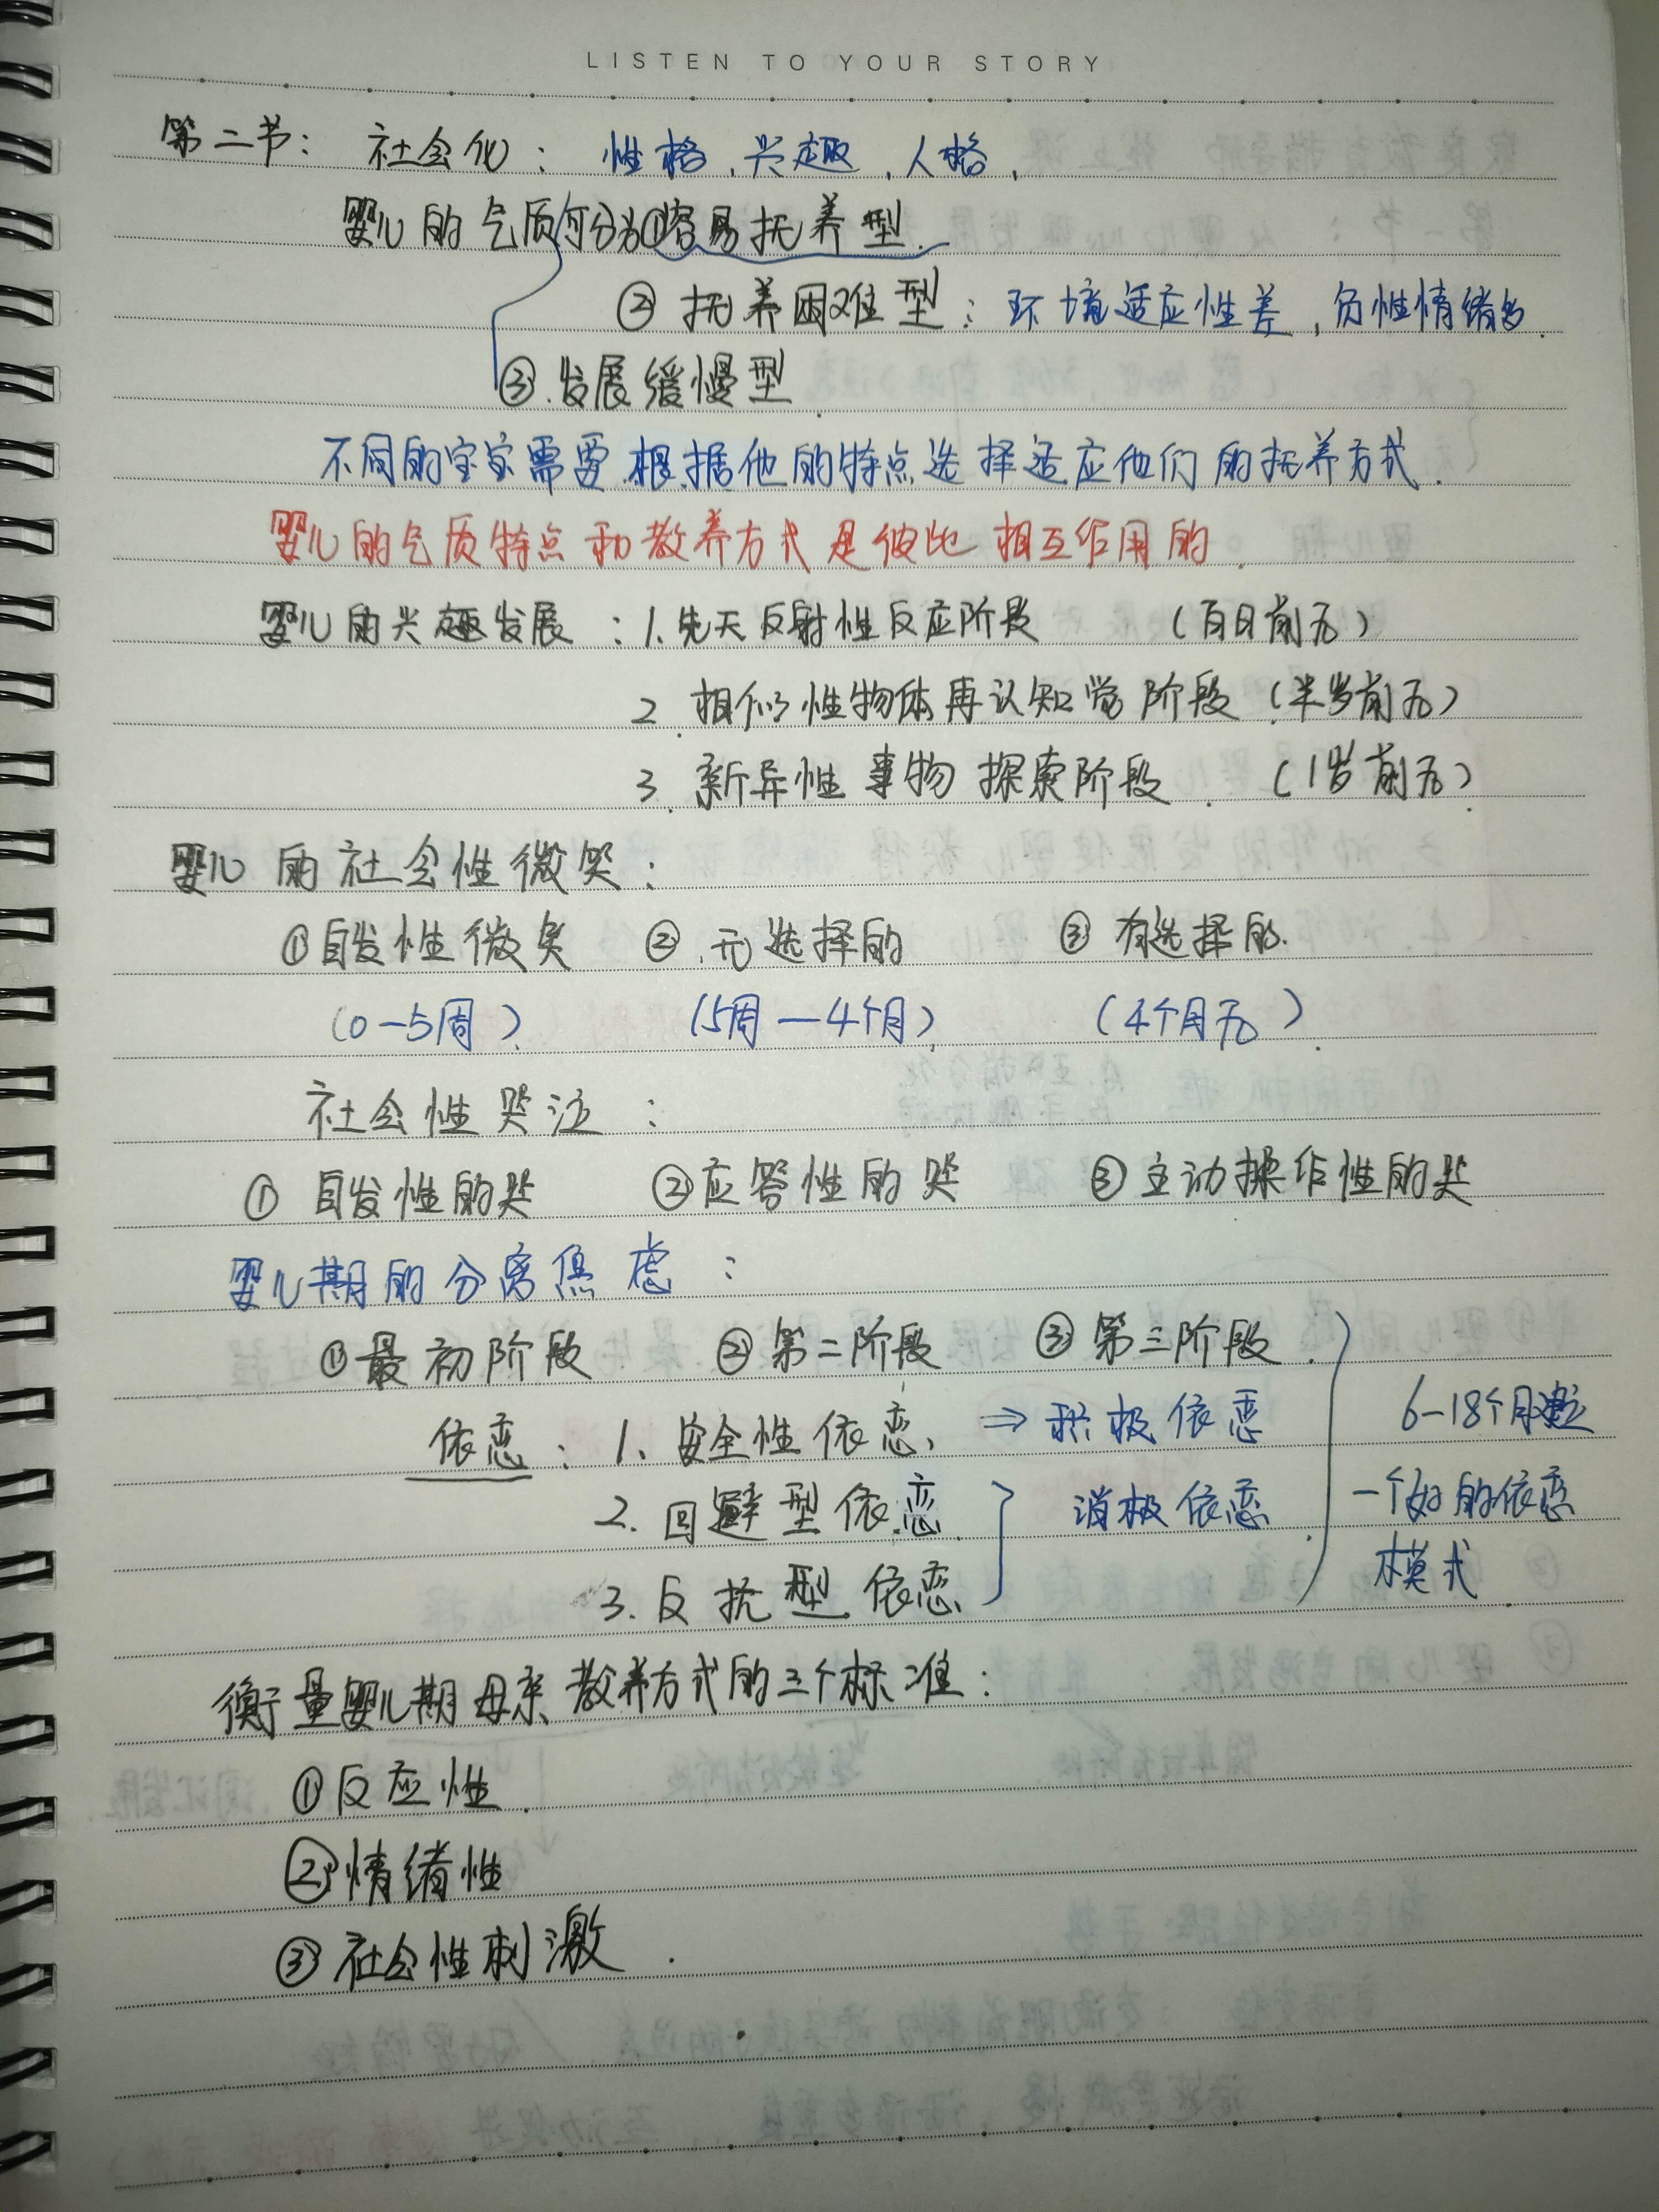 LISTEN TO YOUR STORY
第二节： 社会化： 性格，兴趣，人格，
婴儿的气质可分为①容易抚养型.
②抚养困难型：环境适应性差，负性情绪多.
③.发展缓慢型.
不同的宝宝需要根据他的特点选择适应他们的抚养方式.
婴儿的气质特点和教养方式是彼此相互作用的.
婴儿的兴趣发展：1.先天反射性反应阶段 （百日前后）
2.相似性物体再认知觉阶段（半岁前后）
3.新异性事物探索阶段. （1岁前后）
婴儿的社会性微笑：
①自发性微笑 ②.无选择的 ③有选择的.
（0-5周） （5周—4个月） （4个月后）
社会性哭泣：
① 自发性的哭 ②应答性的哭 ③主动操作性的哭
婴儿期的分离焦虑：
①最初阶段 ②第二阶段 ③第三阶段.
依恋：1、安全性依恋、⇒积极依恋 6-18个月建立
2.回避型依恋. 消极依恋. 一个好的依恋
3.反抗型依恋、 模式.
衡量婴儿期母亲教养方式的三个标准：
①反应性.
②情绪性
③社会性刺激.